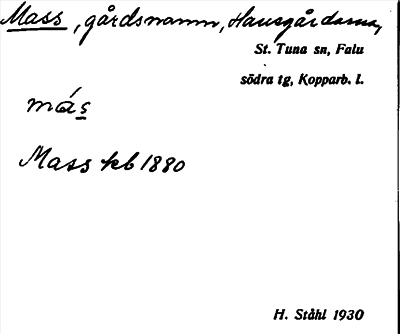 Mass, gårdsnamn, Hansgårdarna,
St. Tuna sn, Falu
södra tg, Kopparb. l.
más
Mass kb 1880
H. Ståhl 1930